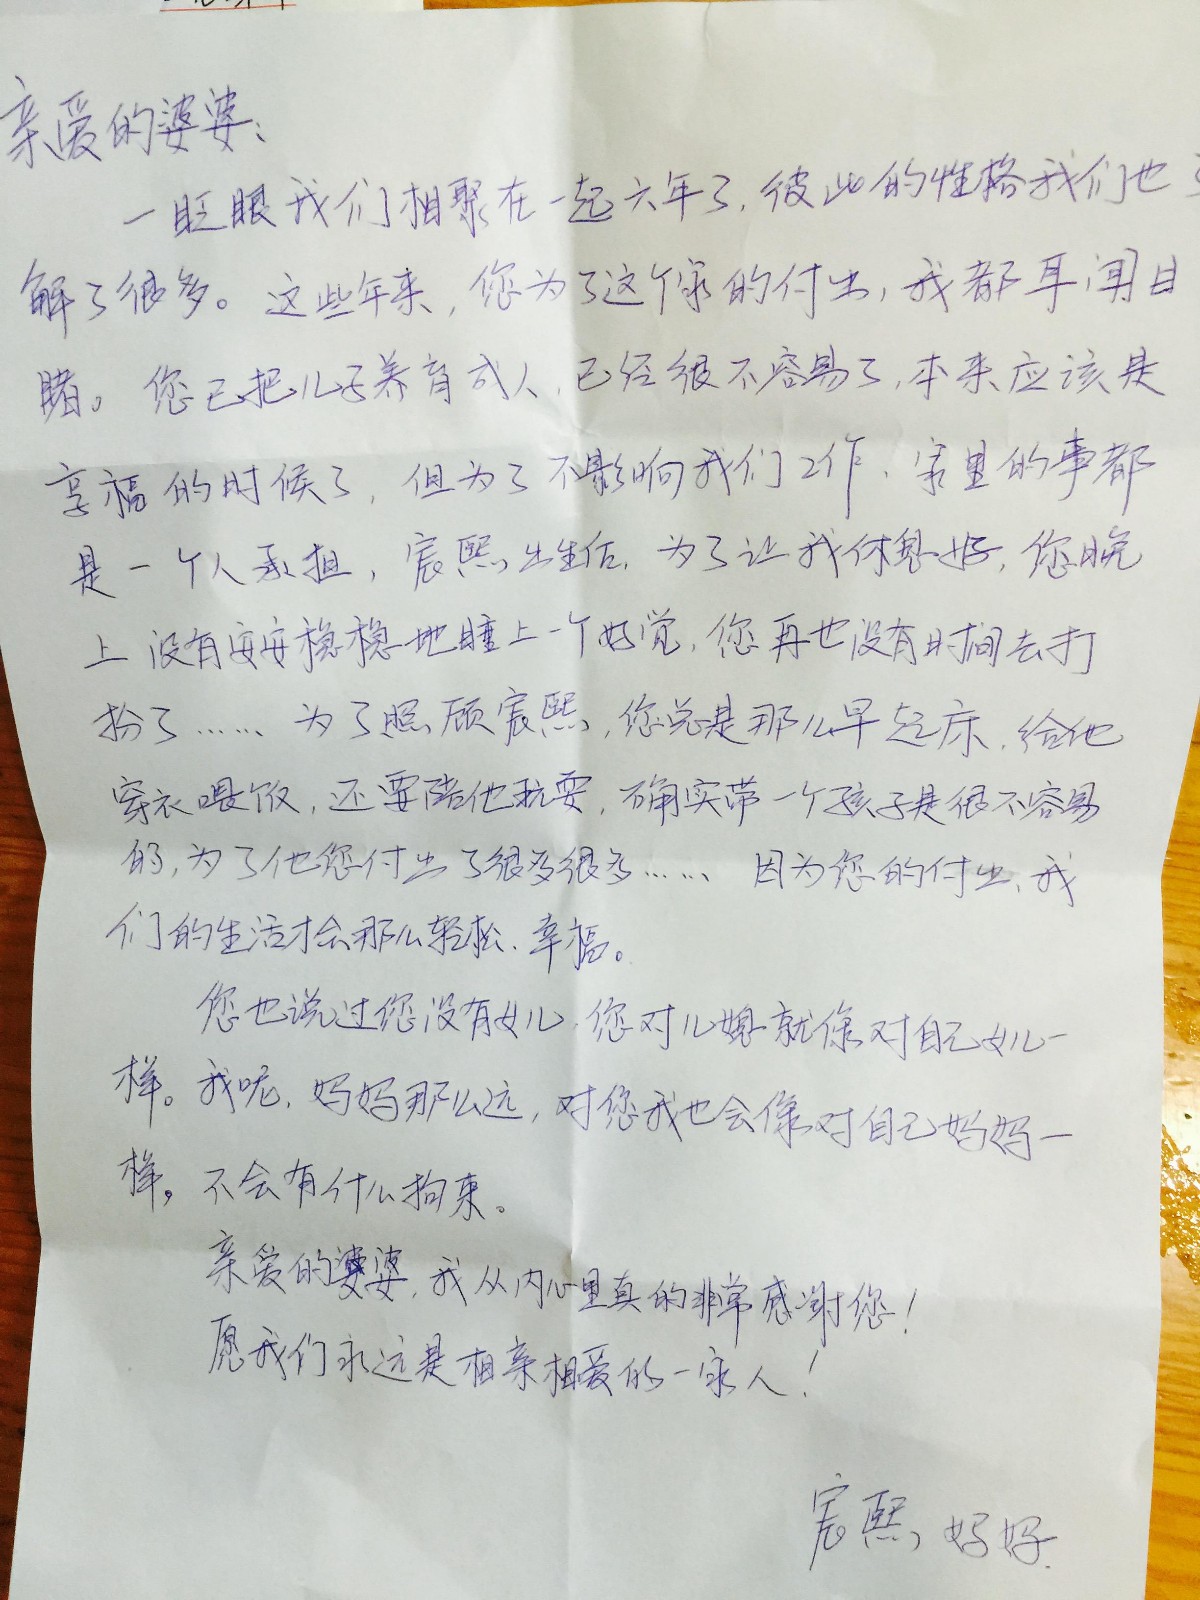 亲爱的婆婆：
一眨眼我们相聚在一起六年了，彼此的性格我们也了
解了很多。这些年来，您为了这个家的付出，我都耳闻目
睹。您已把儿子养育成人，已经很不容易了，本来应该是
享福的时候了，但为了不影响我们工作，家里的事都
是一个人承担，宸熙出生后，为了让我休息好，您晚
上没有安安稳稳地睡上一个好觉，您再也没有时间去打
扮了……为了照顾宸熙，您总是那么早起床，给他
穿衣喂饭，还要陪他玩耍，确实带一个孩子是很不容易
的，为了他您付出了很多很多……因为您的付出，我
们的生活才会那么轻松、幸福。
您也说过您没有女儿，您对儿媳就像对自己女儿一
样。我呢，妈妈那么远，对您我也会像对自己妈妈一
样，不会有什么拘束。
亲爱的婆婆，我从内心里真的非常感谢您！
愿我们永远是相亲相爱的一家人！
宸熙妈妈